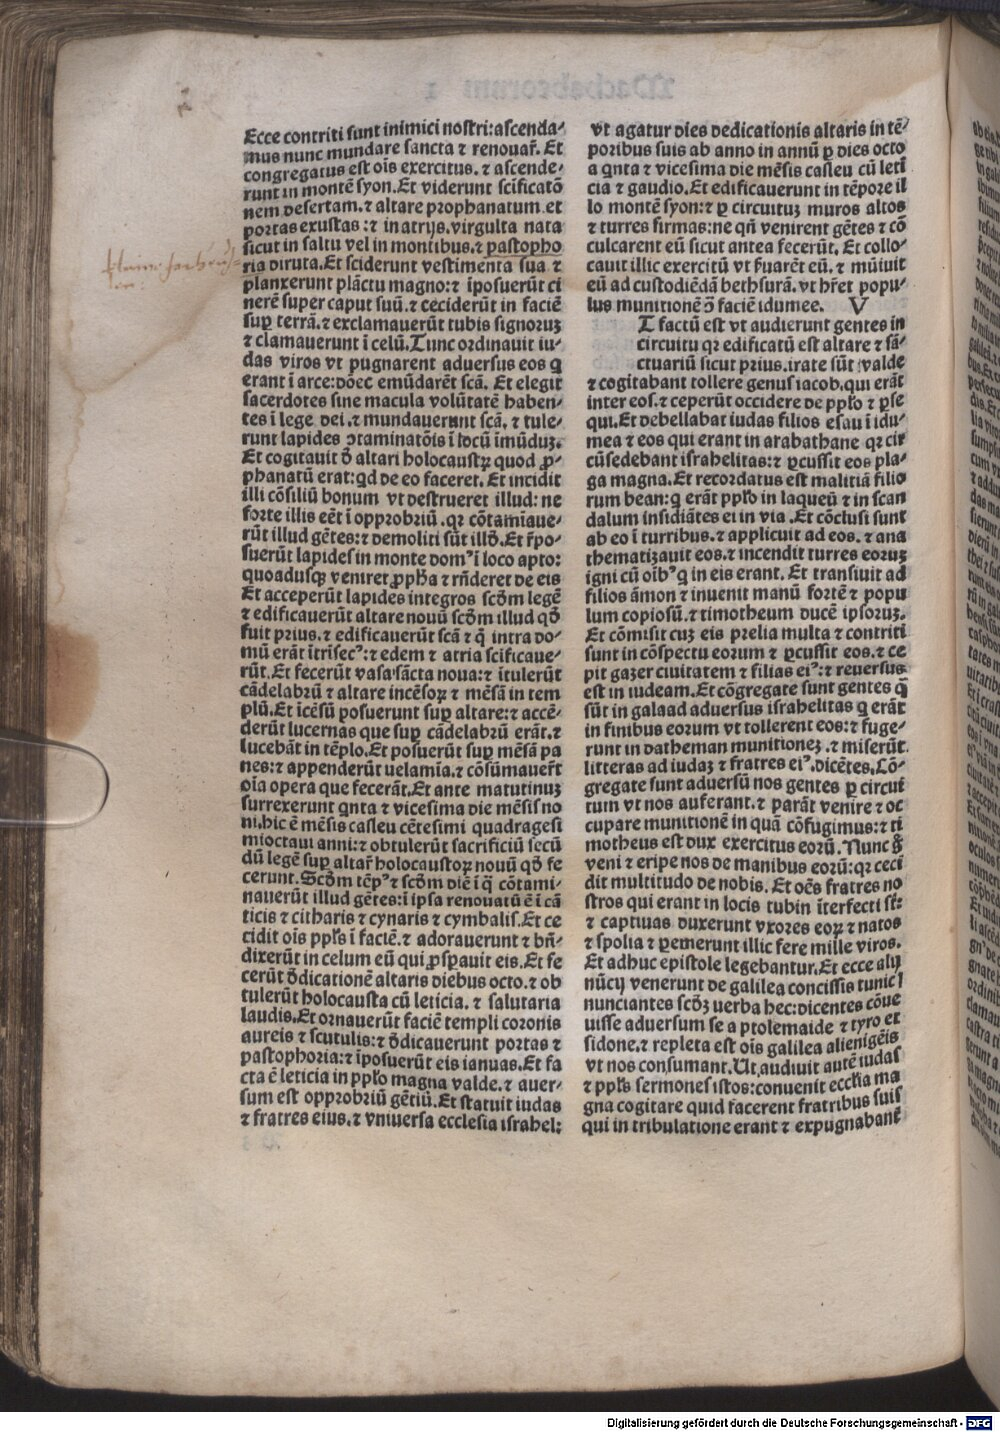 Ecce contriti sunt inimici nostri:ascenda⸗
mus nunc mundare sancta ⁊ renouaꝛ̄. Et
congregatus est oīs exercitus. ⁊ ascende⸗
runt in montē syon. Et viderunt scificatō
nem desertam. ⁊ altare prophanatum. et
portas exustas: ⁊ in atrijs. virgulta nata
sicut in saltu vel in montibus. ⁊ pastopho
ria diruta. Et sciderunt vestimenta sua ⁊
planxerunt plāctu magno: ⁊ īposuerūt ci
nerē super caput suū. ⁊ ceciderūt in faciē
suꝑ terrā. ⁊ exclamauerūt tubis signoruꝫ
⁊ clamauerunt ī celū. Tunc ordinauit iu⸗
das viros vt pugnarent aduersus eos q
erant ī arce: dōec emūdarēt scā. Et elegit
sacerdotes sine macula volūtatē haben⸗
tes ī lege dei. ⁊ mundauerunt scā. ⁊ tule⸗
runt lapides ꝯtaminatōis ī locū īmūduꝫ.
Et cogitauit đ altari holocaustꝝ quod ꝓ⸗
phanatū erat: qd de eo faceret. Et incidit
illi cōsiliū bonum vt destrueret illud: ne
forte illis eēt ī opprobriū. qꝛ cōtamīaue⸗
rūt illud gētes: ⁊ demoliti sūt illđ. Et r̄po⸗
suerūt lapides in monte domꝰ ī loco apto:
quoadusqꝫ veniret ꝓpħa ⁊ rn̄deret de eis
Et acceperūt lapides integros scđm legē
⁊ edificauerūt altare nouū scđm illud qđ
fuit prius. ⁊ edificauerūt scā ⁊ q̄ intra do⸗
mū erāt ītrīsecꝰ: ⁊ edem ⁊ atria scificaue⸗
rūt. Et fecerūt vasa sācta noua: ⁊ ītulerūt
cādelabrū ⁊ altare incēsoꝝ ⁊ mēsā in tem
plū. Et īcēsū posuerunt suꝑ altare: ⁊ accē⸗
derūt lucernas que suꝑ cādelabrū erāt. ⁊
lucebāt in tēplo. Et posuerūt suꝑ mēsā pa
nes: ⁊ appenderūt uelamīa. ⁊ cōsūmauer̄t
oīa opera que fecerāt. Et ante matutinuꝫ
surrexerunt qnta ⁊ vicesima die mēsis no
ni. hic ē mēsis casleu cētesimi quadragesi
mioctaui anni: ⁊ obtulerūt sacrificiū secū
dū legē suꝑ altar̄ holocaustoꝝ nouū qđ fe
cerunt. Scđm tēpꝰ ⁊ scđm diē ī q̄ cōtami⸗
nauerūt illud gētes: ī ipsa renouatū ē ī cā
ticis ⁊ citharis ⁊ cynaris ⁊ cymbalis. Et ce
cidit oīs ppľs ī faciē. ⁊ adorauerunt ⁊ bn̄⸗
dixerūt in celum eū qui ꝓsꝑauit eis. Et fe
cerūt đdicationē altaris diebus octo. ⁊ ob
tulerūt holocausta cū leticia. ⁊ salutaria
laudis. Et ornauerūt faciē templi coronis
aureis ⁊ scutulis: ⁊ đdicauerunt portas ⁊
pastophoria: ⁊ īposuerūt eis ianuas. Et fa
cta ē leticia in ppľo magna valde. ⁊ auer⸗
sum est opprobriū gētiū. Et statuit iudas
⁊ fratres eius. ⁊ vniuersa ecclesia israhel:
vt agatur dies dedicationis altaris in tē⸗
poribus suis ab anno in annū ꝑ dies octo
a qnta ⁊ vicesima die mēsis casleu cū leti
cia ⁊ gaudio. Et edificauerunt in tēpore il
lo montē syon: ⁊ ꝑ circuituꝫ muros altos
⁊ turres firmas: ne qn̄ venirent gētes ⁊ cō
culcarent eū sicut antea fecerūt. Et collo⸗
cauit illic exercitū vt ẜuarēt eū. ⁊ mūiuit
eū ad custodiēdā bethsurā. vt hr̄et popu⸗
lus munitionē ꝯ̄ faciē idumee. V
T factū est vt audierunt gentes in
circuitu qꝛ edificatū est altare ⁊ sā⸗
ctuariū sicut prius. irate sūt valde
⁊ cogitabant tollere genus iacob. qui erāt
inter eos. ⁊ ceperūt occidere de ppľo ⁊ ꝑse
qui. Et debellabat iudas filios esau ī idu⸗
mea ⁊ eos qui erant in arabathane qꝛ cir
cūsedebant israhelitas: ⁊ ꝑcussit eos pla⸗
ga magna. Et recordatus est malitiā filio
rum bean: q erāt ppľo in laqueū ⁊ in scan
dalum insidiātes ei in via. Et cōclusi sunt
ab eo ī turribus. ⁊ applicuit ad eos. ⁊ ana
thematizauit eos. ⁊ incendit turres eoruꝫ
igni cū oībꝰ q in eis erant. Et transiuit ad
filios āmon ⁊ inuenit manū fortē ⁊ popu
lum copiosū. ⁊ timotheum ducē ipsoruꝫ.
Et cōmisit cuꝫ eis prelia multa ⁊ contriti
sunt in cōspectu eorum ⁊ ꝑcussit eos. ⁊ ce
pit gazer ciuitatem ⁊ filias eiꝰ: ⁊ reuersus
est in iudeam. Et cōgregate sunt gentes q̄
sūt in galaad aduersus israhelitas q erāt
in finibus eorum vt tollerent eos: ⁊ fuge⸗
runt in datheman munitioneꝫ. ⁊ miserūt
litteras ad iudaꝫ ⁊ fratres eiꝰ. dicētes. Cō⸗
gregate sunt aduersū nos gentes ꝑ circui
tum vt nos auferant. ⁊ parāt venire ⁊ oc
cupare munitionē in quā cōfugimus: ⁊ ti
motheus est dux exercitus eorū. Nunc g̊
veni ⁊ eripe nos de manibus eorū: qꝛ ceci
dit multitudo de nobis. Et oēs fratres no
stros qui erant in locis tubin īterfecti sr̄:
⁊ captiuas duxerunt vxores eoꝝ ⁊ natos
⁊ spolia ⁊ ꝑemerunt illic fere mille viros.
Et adhuc epistole legebantur. Et ecce alij
nūcij venerunt de galilea concissis tunicꝭ
nunciantes scđꝫ uerba hec: dicentes cōue
uisse aduersum se a ptolemaide ⁊ tyro et
sidone. ⁊ repleta est oīs galilea alienigēis
vt nos consumant. Ut audiuit autē iudas
⁊ ppľs sermones istos: conuenit eccľia ma
gna cogitare quid facerent fratribus suis
qui in tribulatione erant ⁊ expugnabant̄
Digitalisierung gefördert durch die Deutsche Forschungsgemeinschaft - DFG